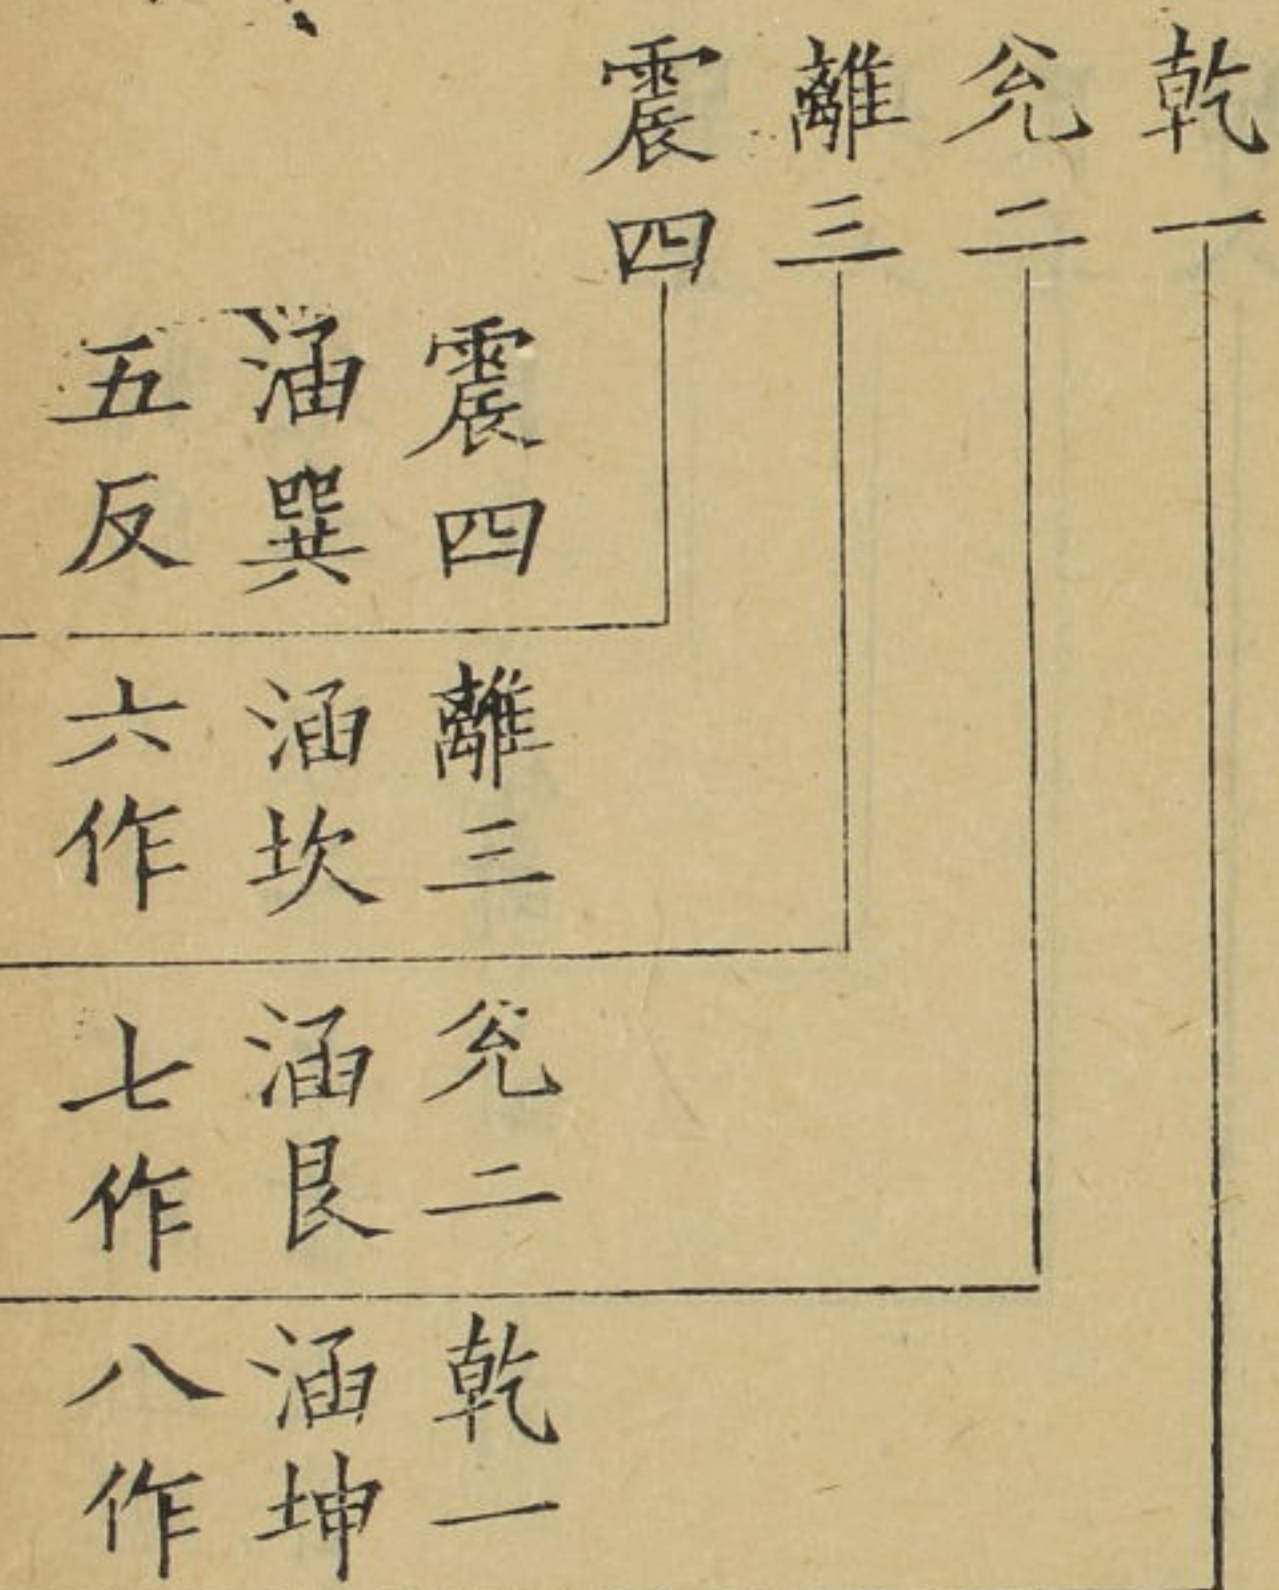 乾一
兊二
離三
震四
震四
涵巽
五反
離三
涵坎
六作
兊二
涵艮
七作
乾一
涵坤
八作